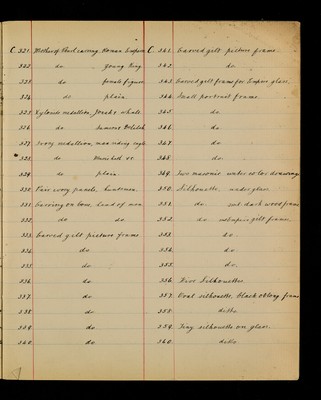 C. 321. Mother of Pearl carving, Roman Emperor
322. do Young King
323. do female figure
324. do plain
325. Xylonite medallion, Jonah & whale
326. do
327. Ivory medallion, man riding eagle
328. do
329. do plain.
330. Pair ivory panels, huntsmen.
331. Carving on bone, head of man
332. do do
333. Carved gilt picture frame
334. do
335. do
336. do
337. do
338. do
339. do
340. do
C. 341. Carved gilt picture frame.
342. do.
343. Carved gilt frame for Empire glass.
344. Small portrait frame
345. do
346. do
347. do
348. do.
349. Two masonic water color drawings
350. Silhouette, under glass.
351. do. cut dark wood frame
352. do gilt frame.
353. do.
354. do
355. do.
356. Five Silhouettes
357. Oval silhouette, black oblong frame
358. ditto.
359. Tiny silhouette on glass.
360. ditto.